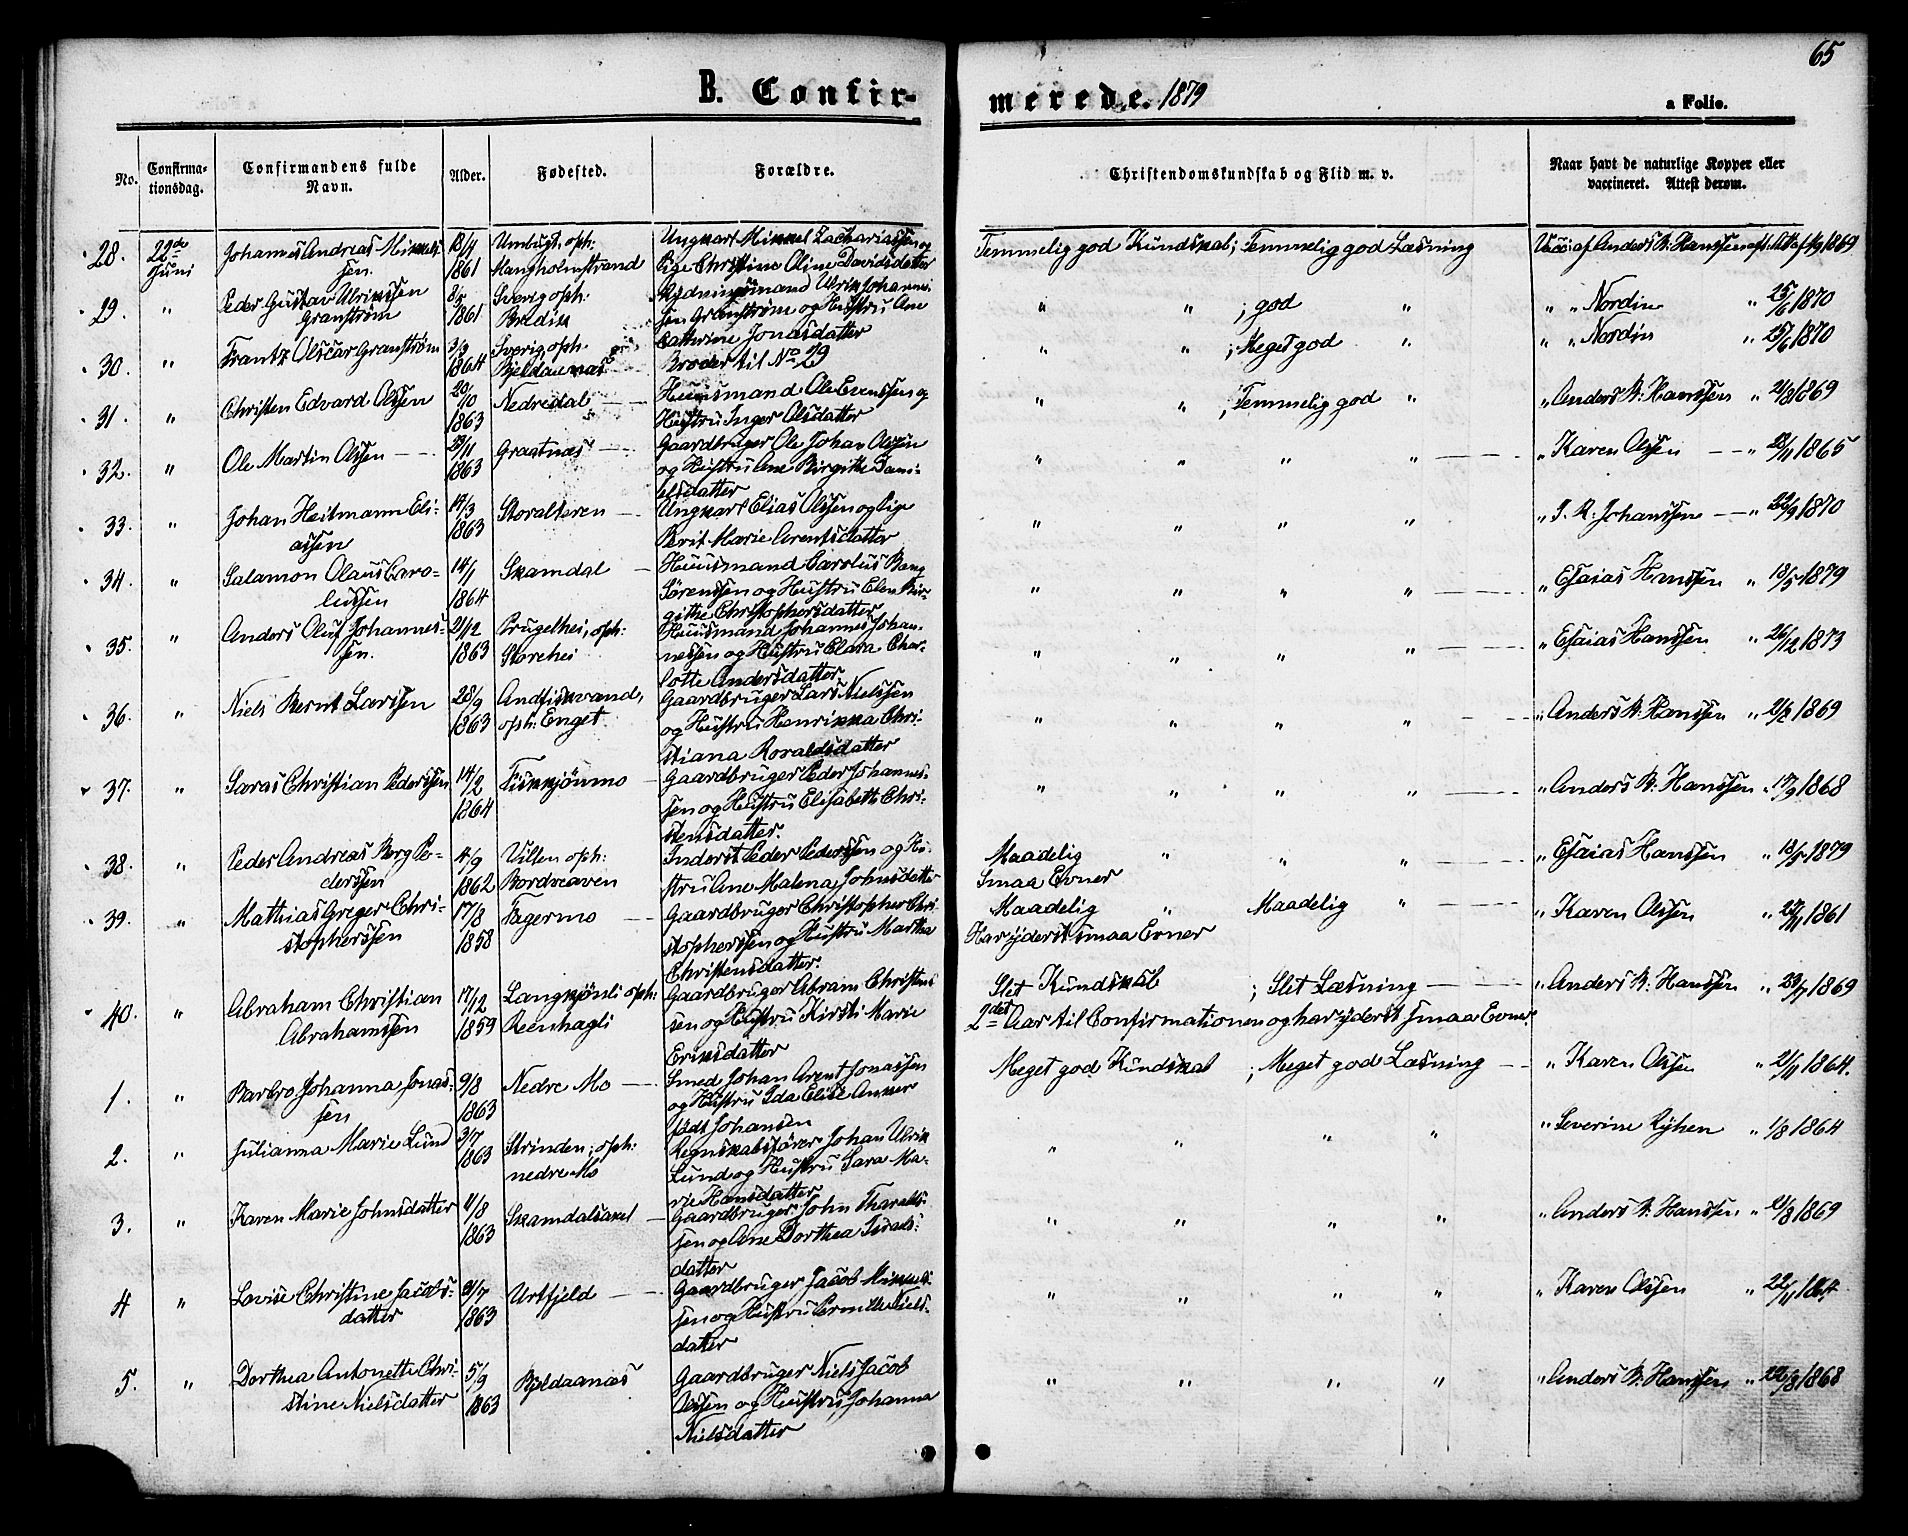 65
B. Confir-
merede. 1879
a Folio.
No.
Confirma-
tionsdag.
Confirmandens fulde
Navn.
Alder.
Fødested.
Forældre.
Christendomskundskab og Flid m. v.
Naar havt de naturlige Kopper eller
vaccineret. Attest derom.
28. 22de Juni
Johannes Andreas Mikkels
sen.
13/4
1861
Umbugt, oph:
Mangholmstrand
Ungkarl Mikkel Zachariassen og
Pige Christine Oline Davidsdatter
Temmelig god Kundskab; Temmelig god Læsning
Vacc: af Anders B. Hanssen
1869
29. "
Peder Gustav Ulrikssen
Granstrøm
1861
Sverig oph:
Ulrik Johannes-
sen Granstrøm og Hustru Ane
Cathrine Jonasdatter
" " ; god "
" " Nordin " 25/6 1870
30. "
Frantz Oscar Granstrøm
3/9
1864
Sverig, oph.
Bjeldaanæs
Broder til No 29
" " ; Meget god "
" " Nordin " 25/6 1870
31. "
Christen Edvard Olssen
20/10
1863
Nedredal
Huusmand Ole Evenssen og
Hustru Inger Olsdatter
" " ; Temmelig god "
" Anders B. Hanssen " 21/8 1869
32. "
Ole Martin Olssen
23/11
1863
Graatnæs
Gaardbruger Ole Johan Olssen
og Hustru Ane Birgitte Dani-
elsdatter
" " " "
" Karen Olssen " 1865
33. "
Johan Heitmann Eli-
assen
17/3
1863
Storalteren
Ungkarl Elias Olssen og Pige
Berit Marie Arentsdatter
" " " "
" Johanssen " 22/9 1870
34. "
Salamon Olaus Caro-
liussen
14/1
1864
Skamdal
Huusmand Carolus Bang
Sørenssen og Hustru Elen Bir-
gitte Christophersdatter
" " " "
" Esaias Hanssen " 18/5 1879
35. "
Anders Oluf Johannes-
sen.
21/12
1863
Brugelhei, oph:
Storehei
Huusmand Johannes Johan-
nessen og Hustru Clara Char-
lotte Andersdatter
" " " "
" Esaias Hanssen " 26/12 1873
36. "
Niels Bernt Larssen
28/9
1863
Andfiskvand,
oph: Enget
Gaardbruger Lars Nielssen
og Hustru Henrikka Chri-
stiana Roraldsdatter
" " " "
" Anders B. Hanssen " 1869
37. "
Saras Christian Pederssen
14/2
1864
Fiskkjønmo
Gaardbruger Peder Johannes-
sen og Hustru Elisabeth Chri-
stensdatter.
" " " "
" Anders B. Hanssen " 17/9 1868
38. "
Peder Andreas Berg Pe-
derssen
4/9
1862
Villen oph:
Bordveaven
Inderst Peder Pederssen og Hu-
stru Ane Malena Johnsdatter
Maadelig " " "
Smaa Evner
" Esaias Hanssen " 18/5 1879
39. "
Mathias Greger Chri-
stopherssen
17/8
1858
Fagermo
Gaardbruger Christopher Chri-
stopherssen og Hustru Martha
Christensdatter.
Maadelig " Maadelig "
Har yderst smaa Evner
" Karen Olssen " 1861
40. "
Abraham Christian
Abrahamssen
17/12
1859
Langkjønli oph:
Reenhagli
Gaardbruger Abram Christens
sen og Hustru Kirsti Marie
Eriksdatter
Slet Kundskab ; Slet Læsning
2det Aar til Confirmationen og har yderst smaa Evner.
" Anders B. Hanssen " 23/7 1869
1. "
Barbro Johanna Jonas-
sen
9/8
1863
Nedre Mo
Smed Johan Arent Jonassen
og Hustru Ida Elise Anker
født Johansen
Meget god Kundskab ; Meget god Læsning
" Karen Olssen " 21/11 1864.
2. "
Julianna Marie Lund
3/7
1863
Strinden, oph:
nedre Mo
Regnskabsfører Johan Ulrik
Lund og Hustru Sara Ma-
rie Hansdatter
" " " "
" Severine Ryhen " 1/8 1864
3. "
Karen Marie Johnsdatter
11/8
1863
Skamdalsaxel
Gaardbruger John Tharalds-
sen og Ane Dorthea Israels-
datter
" " " "
" Anders B. Hanssen " 21/8 1869
4 "
Lovise Christine Jacobs-
datter
21/7
1863
Urtfjeld
Gaardbruger Jacob Mikkel-
sen og Hustru Pernille Niels-
datter
" " " "
" Karen Olssen " 22/11 1864
5. "
Dorthea Antonette Chri-
stine Nielsdatter
5/9
1863
Bjeldaanæs
Gaardbruger Niels Jacob
Olssen og Hustru Johanna
Nielsdatter
" " " "
" Anders B. Hanssen " 22/8 1868